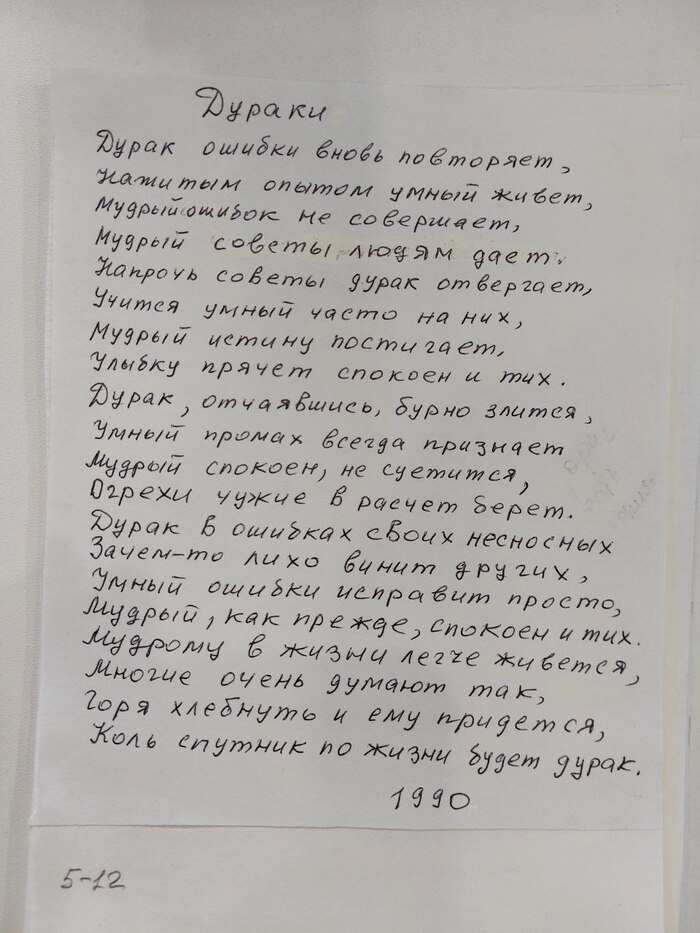 Дураки
Дурак ошибки вновь повторяет,
Нажитым опытом умный живет,
Мудрый ошибок не совершает,
Мудрый советы людям дает.
Напрочь советы дурак отвергает,
Учится умный часто на них,
Мудрый истину постигает,
Улыбку прячет спокоен и тих.
Дурак, отчаявшись, бурно злится,
Умный промах всегда признает
Мудрый спокоен, не суетится,
Огрехи чужие в расчет берет.
Дурак в ошибках своих несносных
Зачем-то лихо винит других,
Умный ошибки исправит просто,
Мудрый, как прежде, спокоен и тих.
Мудрому в жизни легче живется,
Многие очень думают так,
Горя хлебнуть и ему придется,
Коль спутник по жизни будет дурак.
1990
5-12